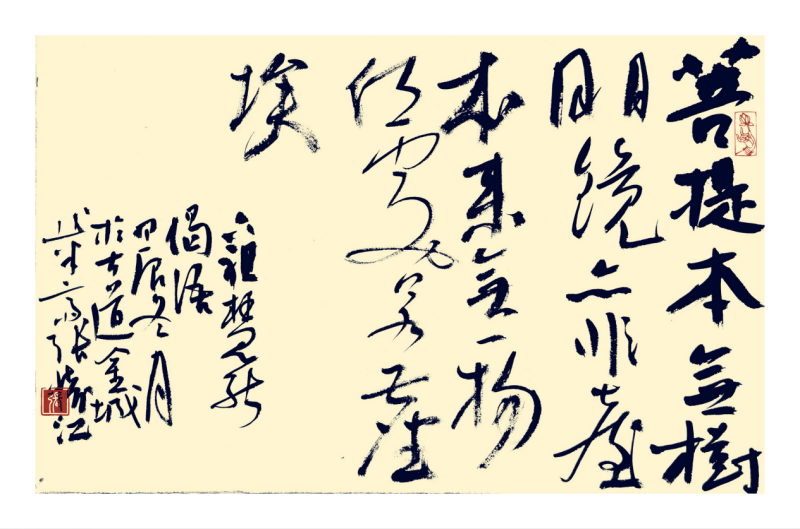 菩提本無樹
明鏡亦非臺
本來無一物
何處惹塵
埃
六祖慧能
偈語
甲辰冬月
於古道金城
張江